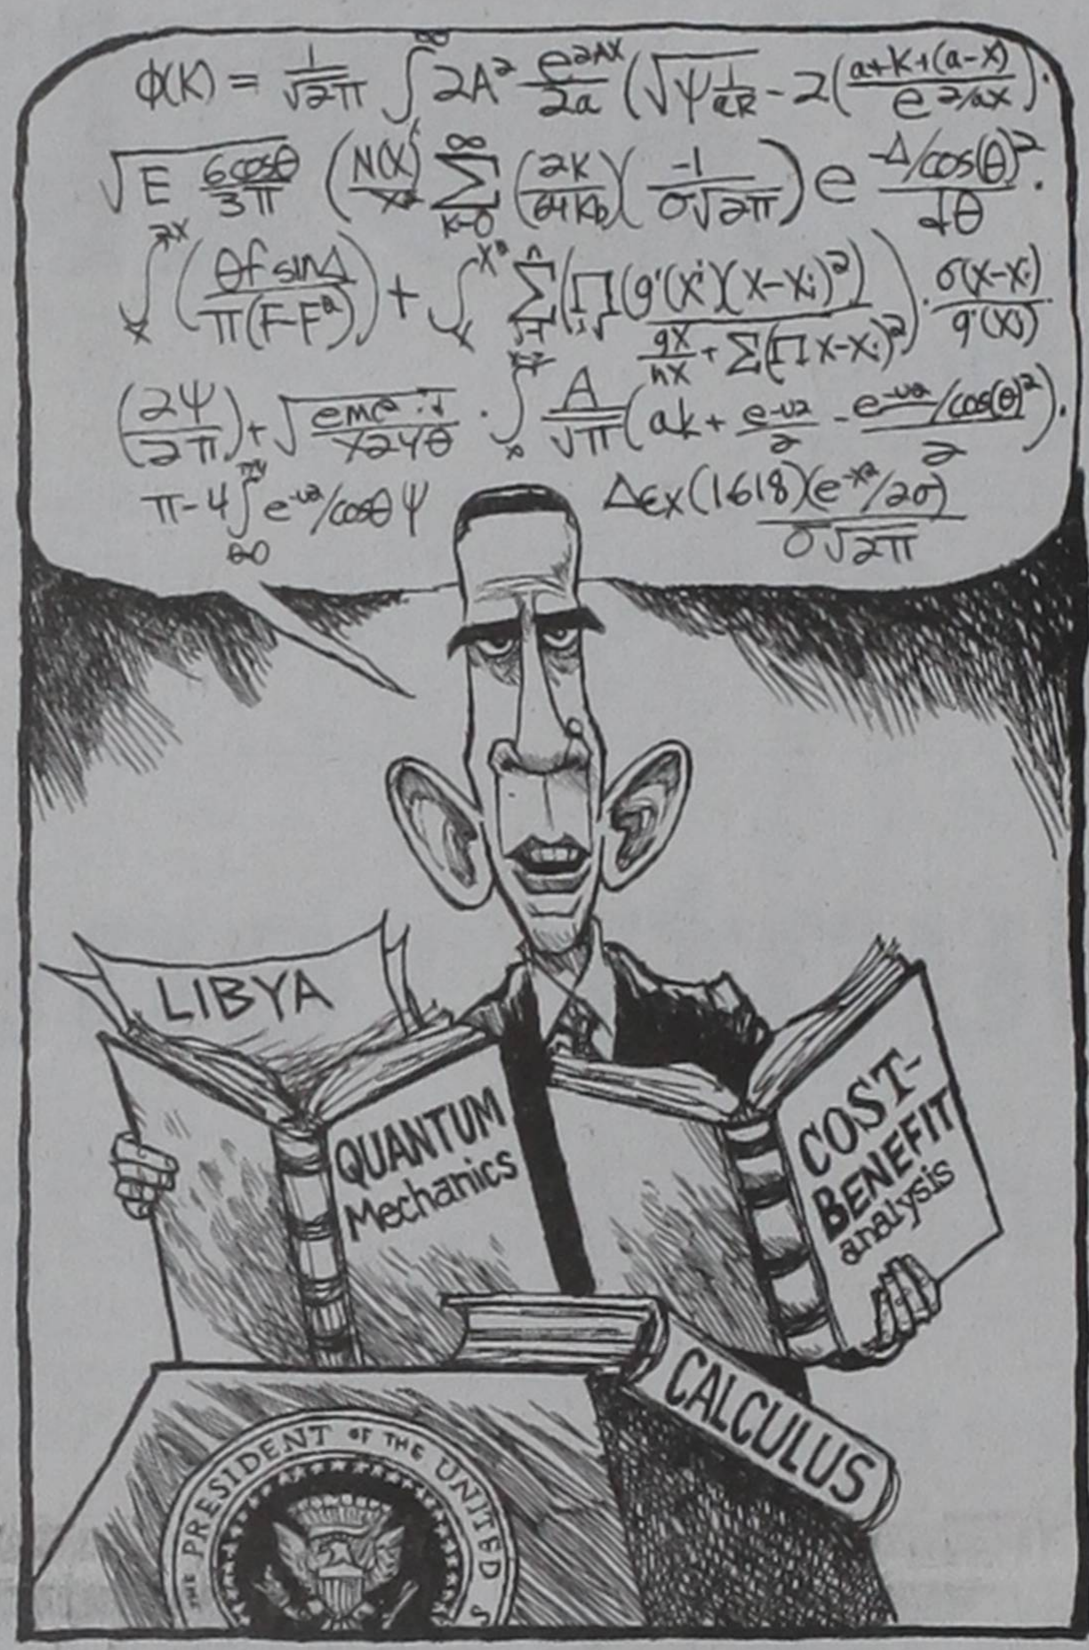 φ(K) = 1/√2π ∫∞ 2A² e2AX/2a (√ψ 1/aR - 2(a+K+(a-X)/e 2/ax).
√E 6cosθ/3π (N(X)/X ∞∑K=0 (2K/64Kb)(-1/σ√2π) e -Δ/cos(θ)²/dθ.
∫ (θf sinΔ/π(F-Fa)) + ∫ ∑(∏(g'(xi)(x-xi)²)/gx/nx + ∑(∏ x-xi)²). σ(x-xi)/g'(xi)
(2ψ/2π) + √emc²·√/x24θ · ∫ A/√π (ak + e-u2/2 - e-u2/cos(θ)²/2).
π-4∫ e-u2/cosθ ψ Δεx(1618)(e-x2/2σ)/σ√2π
LIBYA
QUANTUM
Mechanics
COST-
BENEFIT
analysis
CALCULUS
THE PRESIDENT OF THE UNITED S